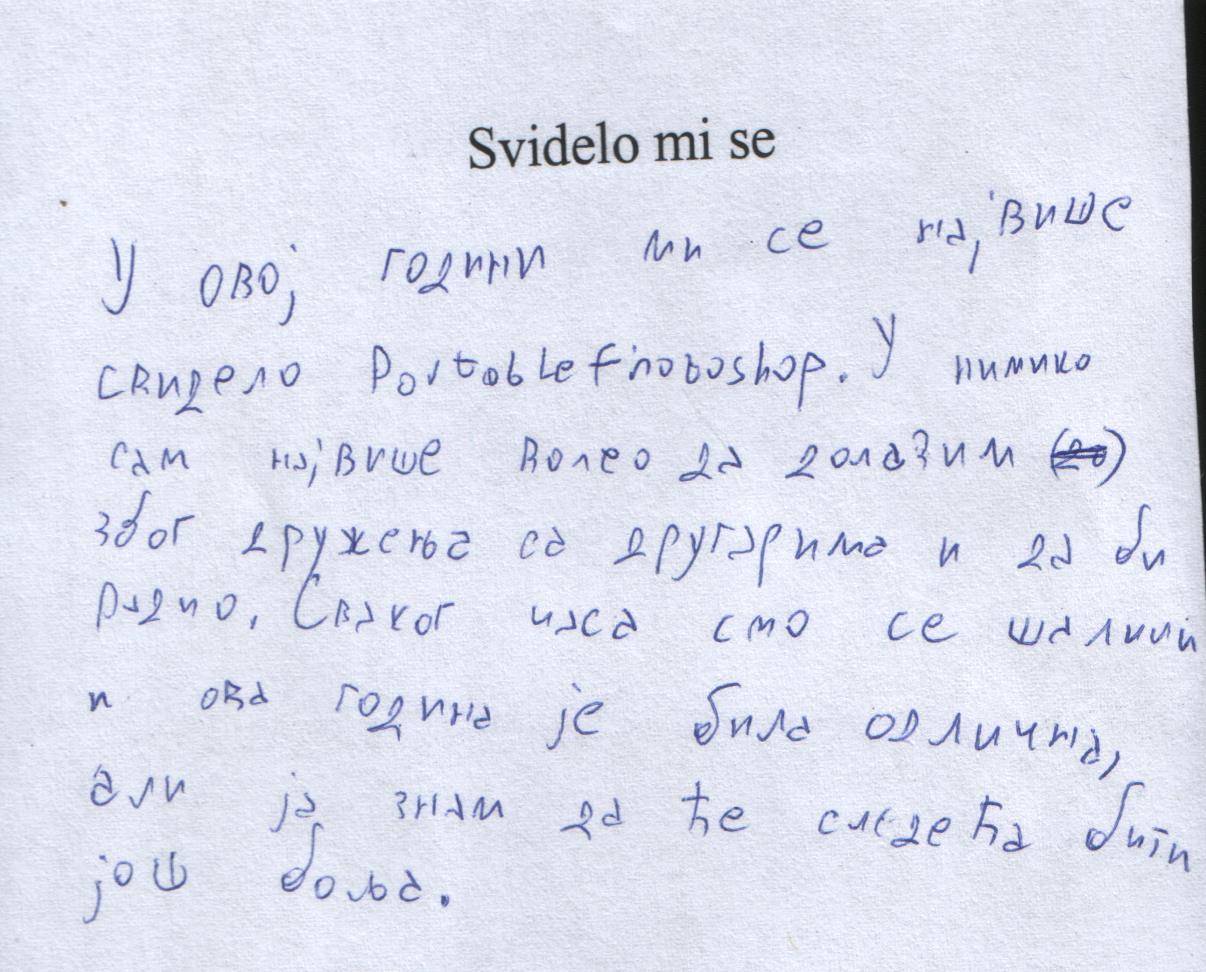 Svidelo mi se
У овој години ми се највише
свидело Portoblefhotoshop. У нимико
сам највише волео да долазим
због дружења са другарима и да би
радио. Сваког часа смо се шалили
и ова година је била одлична,
али ја знам да ће следећа бити
још боља.